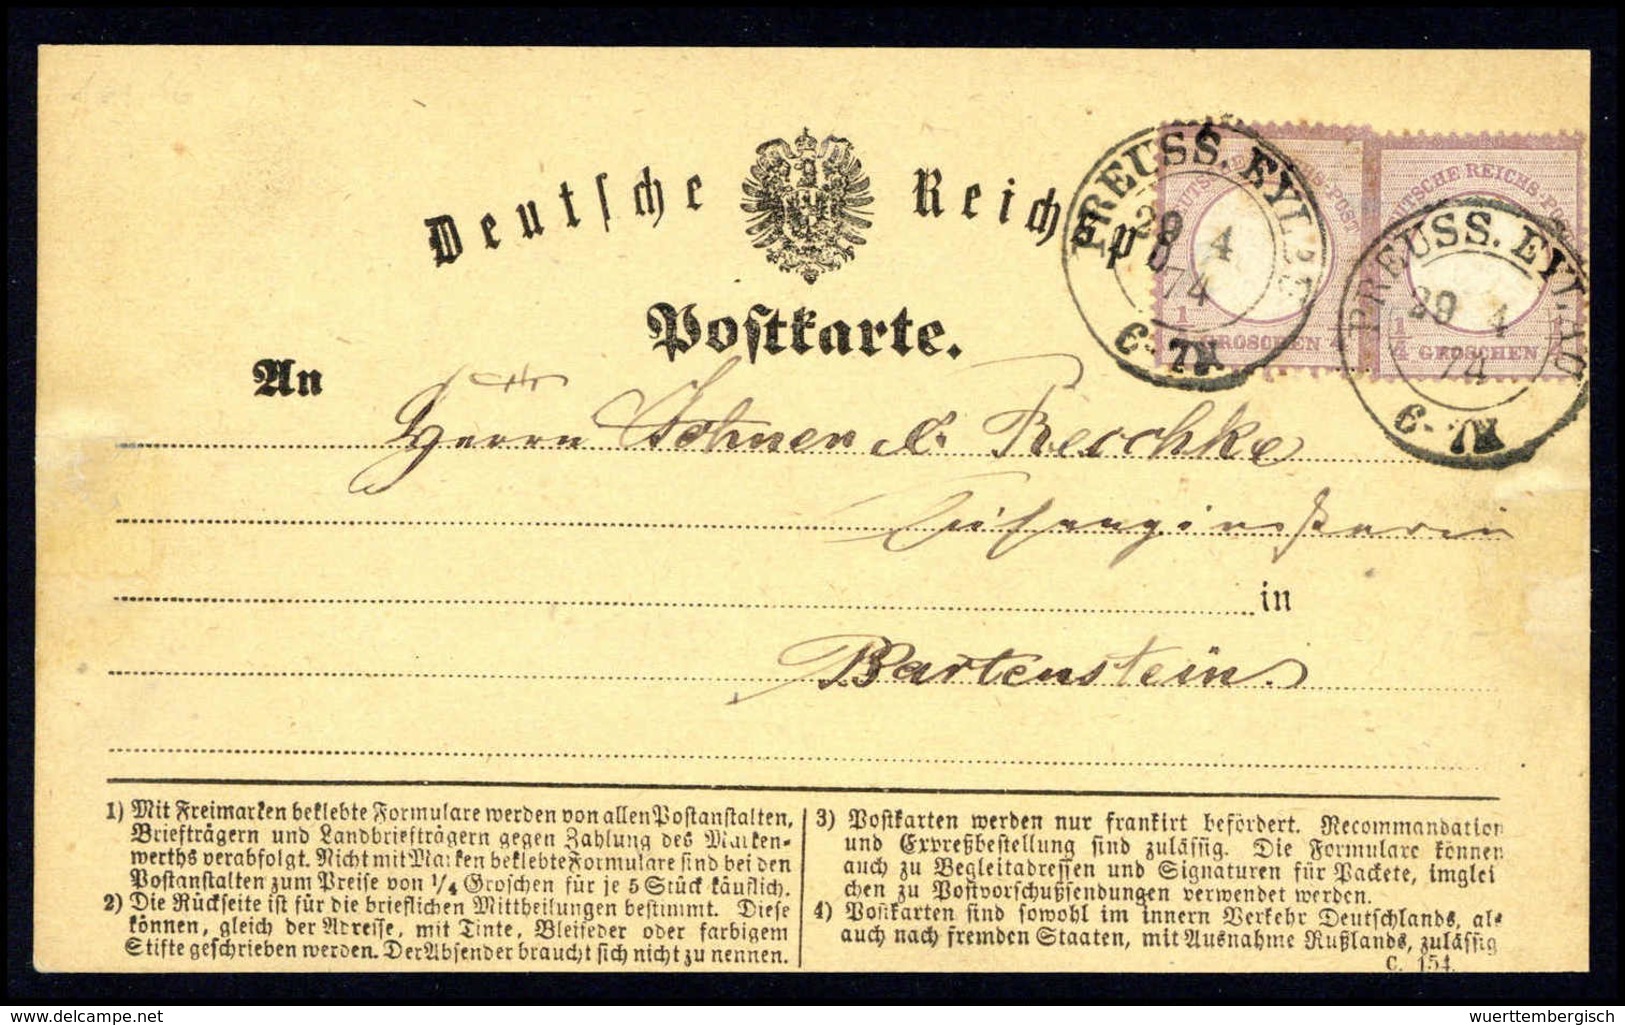 Deutsche Reichspost
Postkarte.
PREUSS. EYLAU
29 4
74
6-7N
DEUTSCHE REICHS-POST
1/4 GROSCHEN 1/4
PREUSS. EYLAU
29 4
74
6-7N
DEUTSCHE REICHS-POST
1/4 GROSCHEN 1/4
An
Herrn Sohnen & Reschke
in
Bartenstein.
1) Mit Freimarken beklebte Formulare werden von allen Postanstalten,
Briefträgern und Landbriefträgern gegen Zahlung des Marken-
werths verabfolgt. Nicht mit Marken beklebte Formulare sind bei den
Postanstalten zum Preise von 1/4 Groschen für je 5 Stück käuflich.
2) Die Rückseite ist für die brieflichen Mittheilungen bestimmt. Diese
können, gleich der Adresse, mit Tinte, Bleifeder oder farbigem
Stifte geschrieben werden. Der Absender braucht sich nicht zu nennen.
3) Postkarten werden nur frankirt befördert. Recommandation
und Expreßbestellung sind zulässig. Die Formulare können
auch zu Begleitadressen und Signaturen für Packete, imglei
chen zu Postvorschußsendungen verwendet werden.
4) Postkarten sind sowohl im innern Verkehr Deutschlands, als
auch nach fremden Staaten, mit Ausnahme Rußlands, zulässig
C. 154.
©delcampe.net
wuerttembergisch